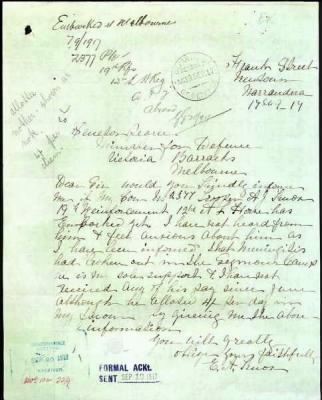 Embarked at Melbourne
7/9/1917
2377 Pte
19th Rfts
12th L H Reg
A I F
Abroad
allotte
mother shown as
nok
4/- per
Street
Narrandera
17
Senator Pearce
Minister for Defence
Victoria Barracks
Melbourne
Dear Sir would you Kindly inform
Me if My Son No 2377
19th Reinforcement 12th Lt Horse has
Embarked yet I have not heard from
him & feel Anxious About him as
I have been informed that Meningitis
had broken out in the Seymour Camp
he is my sole support & I have not
received Any of his Pay since June
Although he allotted 4/- per day in
My favour by Giving Me the Above
information
you will Greatly
oblige yours faithfully
E. A.
FORMAL ACKT.
SENT SEP 1917